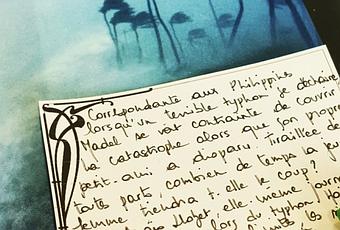 Correspondante aux Philippines
lorsqu'un terrible typhon se déchaîne
Madel se voit contrainte de couvrir
la catastrophe alors que son propre
petit-ami a disparu. Tiraillée de
toute part, combien de temps la jeune
femme tiendra t-elle le coup?
elle-même journ
lors du typhon
les m